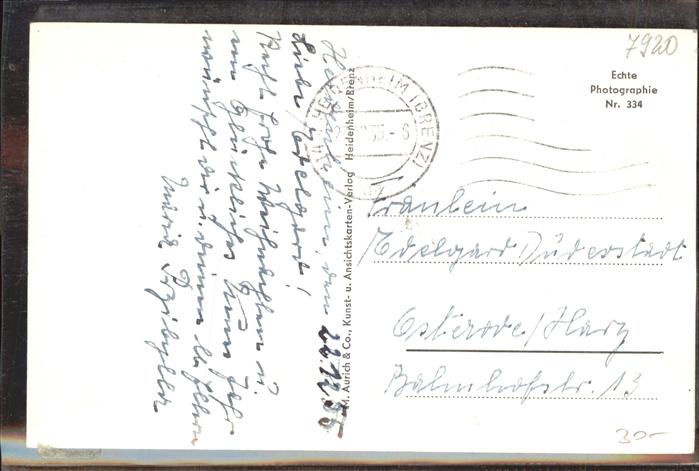 7920
Echte
Photographie
Nr. 334
HEIDENHEIM (BRENZ)
55.-6
M. Aurich & Co., Kunst- u. Ansichtskarten-Verlag Heidenheim/Brenz
Heidenheim, den 22.12.55
Liebe Edelgard!
Recht frohe Weihnachten u.
ein glückliches Neues Jahr
wünscht dir u. deinen lb. Eltern
Maria
Fräulein
Edelgard Düderstadt
Osterode/Harz
Bahnhofstr. 13
30-